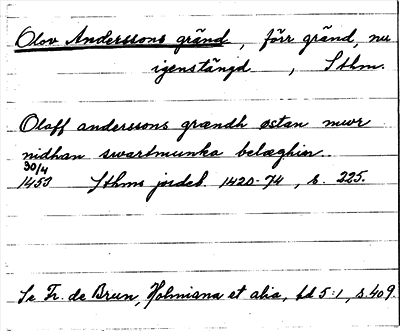 Olov Anderssons gränd, förr gränd, nu
igenstängd, Sthm.
Olaff anderssons grændh østan mwr
nidhan swartmunka belæghin.
30/4
1453 Sthms jordeb. 1420-74, s. 225.
Se Fr. de Brun, Holmiana et alia, bd 5:1, s. 409.